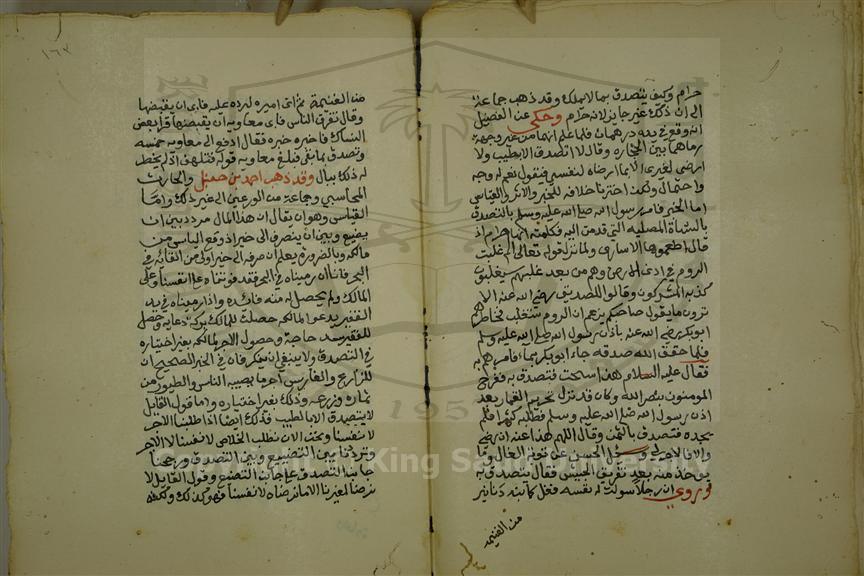 حرام وكيف يتصدق بما لا يملك وقد ذهب جماعة
الى ان ذلك غير جايز لانه حرام وحكى عن الفضيل
انه وقع في يده درهمان فلما علم انهما من غير وجههما
رماهما بين الحجارة وقال لا اتصدق الا بطيب ولا
ارضى لغيري الا بما ارضاه لنفسي فنقول نعم له وجه
واحتمال ولكن اخترنا خلافه للخبر والاثر والقياس
اما الخبر فامر رسول الله صلى الله عليه وسلم بالتصدق
بالشاة المصلية التي قدمت اليه فكلمته انها حرام اذ
قال اطعموها الاسارى ولما نزل قوله تعالى الم غلبت
الروم في ادنى الارض وهم من بعد غلبهم سيغلبون
كذبه المشركون وقالوا للصديق رضي الله عنه الا
ترون ما يقول صاحبكم يزعم ان الروم ستغلب فخاطرهم
ابو بكر رضي الله عنه باذن رسول الله صلى الله عليه وسلم
فلما حقق الله صدقه جاء ابو بكر بما قامرهم به
فقال عليه السلام هذا سحت فتصدق به ففرح
المومنون بنصر الله وكان قد نزل تحريم القمار بعد
اذن رسول الله صلى الله عليه وسلم
يجده فتصدق بالثمن وقال اللهم هذا عنه ان رضي
والا فالاجر لي وسئل الحسن عن توبة الغال وما
يوخذ منه بعد تفريق الجيش فقال يتصدق به
وروي ان رجلا سولت له نفسه فغل مائة دنانير
من الغنيمة
١٦٣
من الغنيمة ثم اتى اميره ليرده عليه فابى ان يقبضها
وقال تفرق الناس فاتى معاوية فابى ان يقبضها فاتى بعض
النساك فاخبره خبره فقال ادفع الى معاوية خمسه
وتصدق بما بقي فبلغ معاوية قوله فتلهف اذ لم يخطر
له ذلك ببال وقد ذهب احمد بن حنبل والحارث
المحاسبي وجماعة من الورعين الى غير ذلك واما
القياس وهو ان يقال ان هذا المال مردد بين ان
يضيع وبين ان يصرف الى خير اذ وقع الياس من
مالكه وبالضرورة يعلم ان صرفه الى خير اولى من القائه في
البحر فانا ان رميناه في البحر فقد فوتناه على انفسنا وعلى
المالك ولم يحصل له منه فائدة واذا رميناه في يد
الفقير يدعو لمالكه حصلت للمالك بركة دعايه وحصل
للفقير سد حاجة وحصول الاجر لمالكه بغير اختياره
في التصدق ولا ينبغي ان ينكر فان في الخبر الصحيح ان
للزارع والغارس اجر ما يصيبه الناس والطيور من
ثماره وزرعه وذلك بغير اختياره واما قول القايل
لا يتصدق الا بالطيب فذلك ايضا اذا طلبنا الاجر
لانفسنا ونحن الان نطلب الخلاص لانفسنا لا الاجر
وترددنا بين التضييع وبين التصدق ورجحنا
جانب التصدق على جانب التضييع وقول القايل لا
نرضا لغيرنا الا ما نرضاه لانفسنا فهو كذلك ولكنه